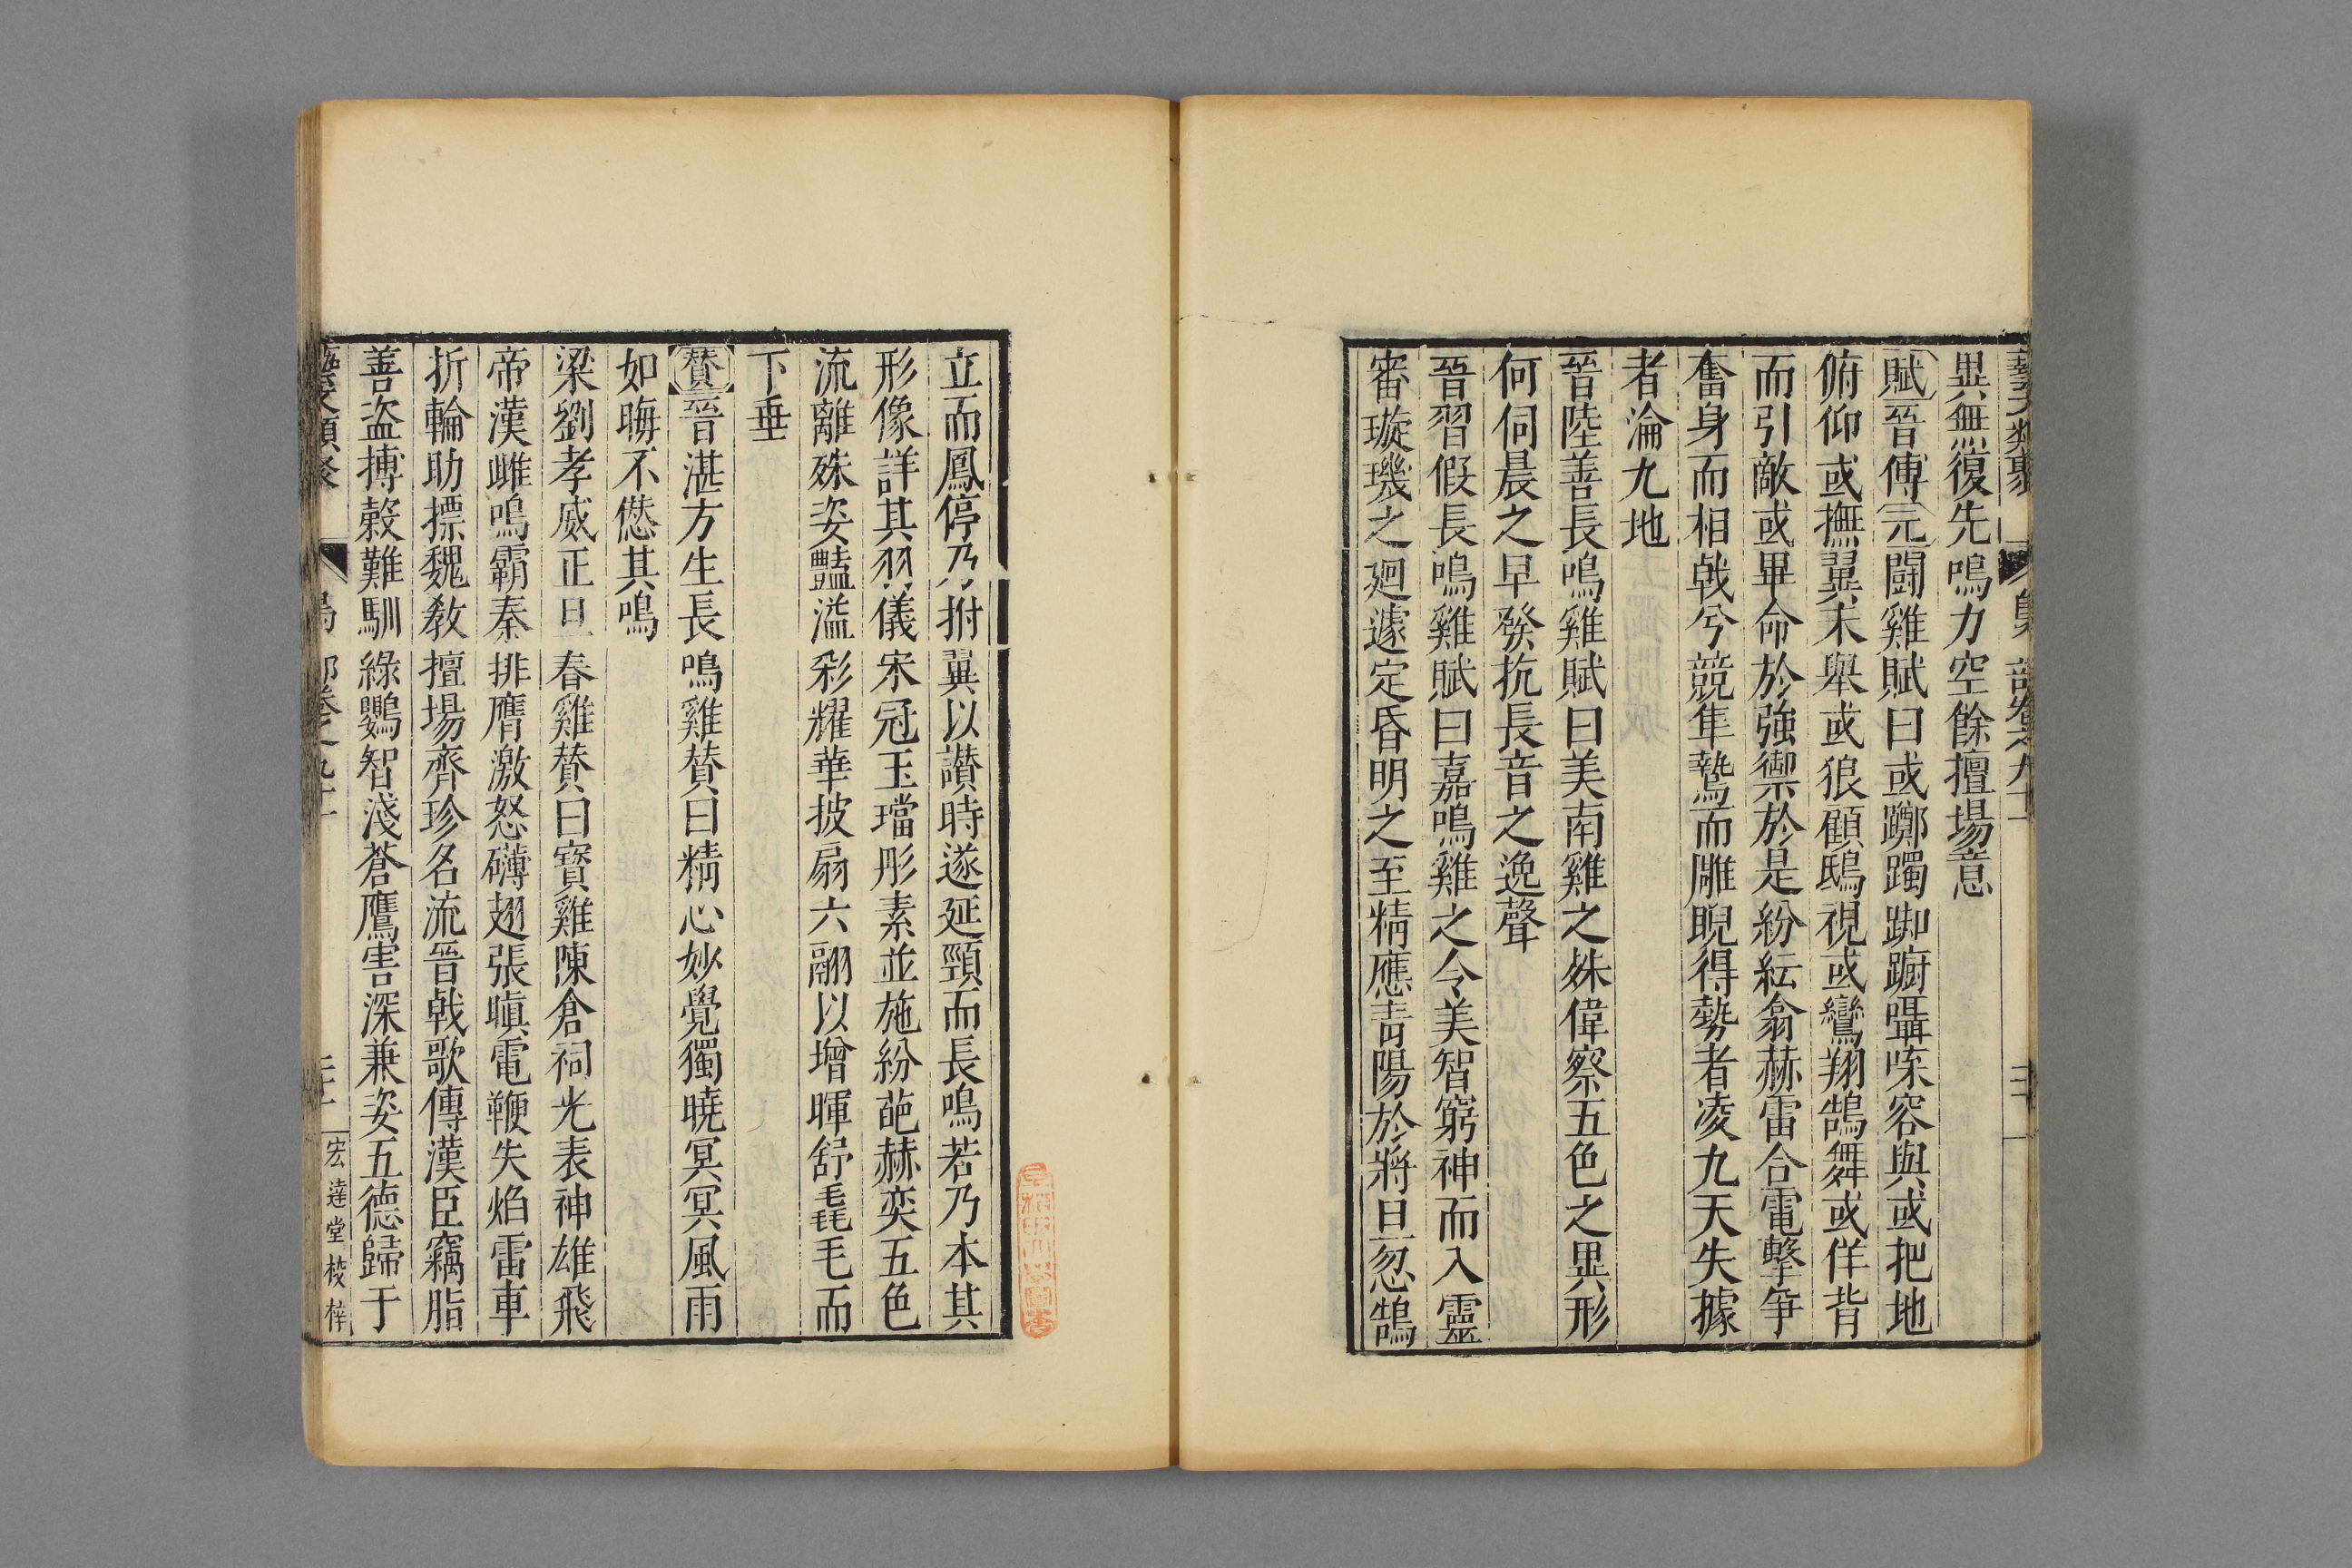 藝文類聚 鳥部卷之九十一
異無復先鳴力空餘擅場意
賦晉傅元鬪雞賦曰或躑躅踟蹰囁哚容與或把地
俯仰或撫翼未舉或狼顧鴟視或鸞翔鵠舞或佯背
而引敵或畢命於強禦於是紛紜翕赫雷合電擊爭
奮身而相戟兮競隼鷙而雕睨得勢者凌九天失據
者淪九地
晉陸善長鳴雞賦曰美南雞之姝偉察五色之異形
何伺晨之早發抗長音之逸聲
晉習假長鳴雞賦曰嘉鳴雞之令美智窮神而入靈
審璇璣之廻遽定昏明之至精應青陽於將旦忽鵠
立而鳳停乃拊翼以讚時遂延頸而長鳴若乃本其
形像詳其羽儀宋冠玉璫彤素並施紛葩赫奕五色
流離殊姿豔溢彩耀華披扇六翮以增暉舒毳毛而
下垂
贊晉湛方生長鳴雞贊曰精心妙覺獨曉冥冥風雨
如晦不僁其鳴
梁劉孝威正旦春雞贊曰寶雞陳倉祠光表神雄飛
帝漢雌鳴霸秦排膺激怒礴翅張瞋電鞭失焰雷車
折輪助摽魏敎擅場齊珍名流晉戟歌傳漢臣竊脂
善盜搏穀難馴綠鸚智淺蒼鷹害深兼姿五德歸于
藝文類聚 鳥部卷之九十一 宏達堂校梓